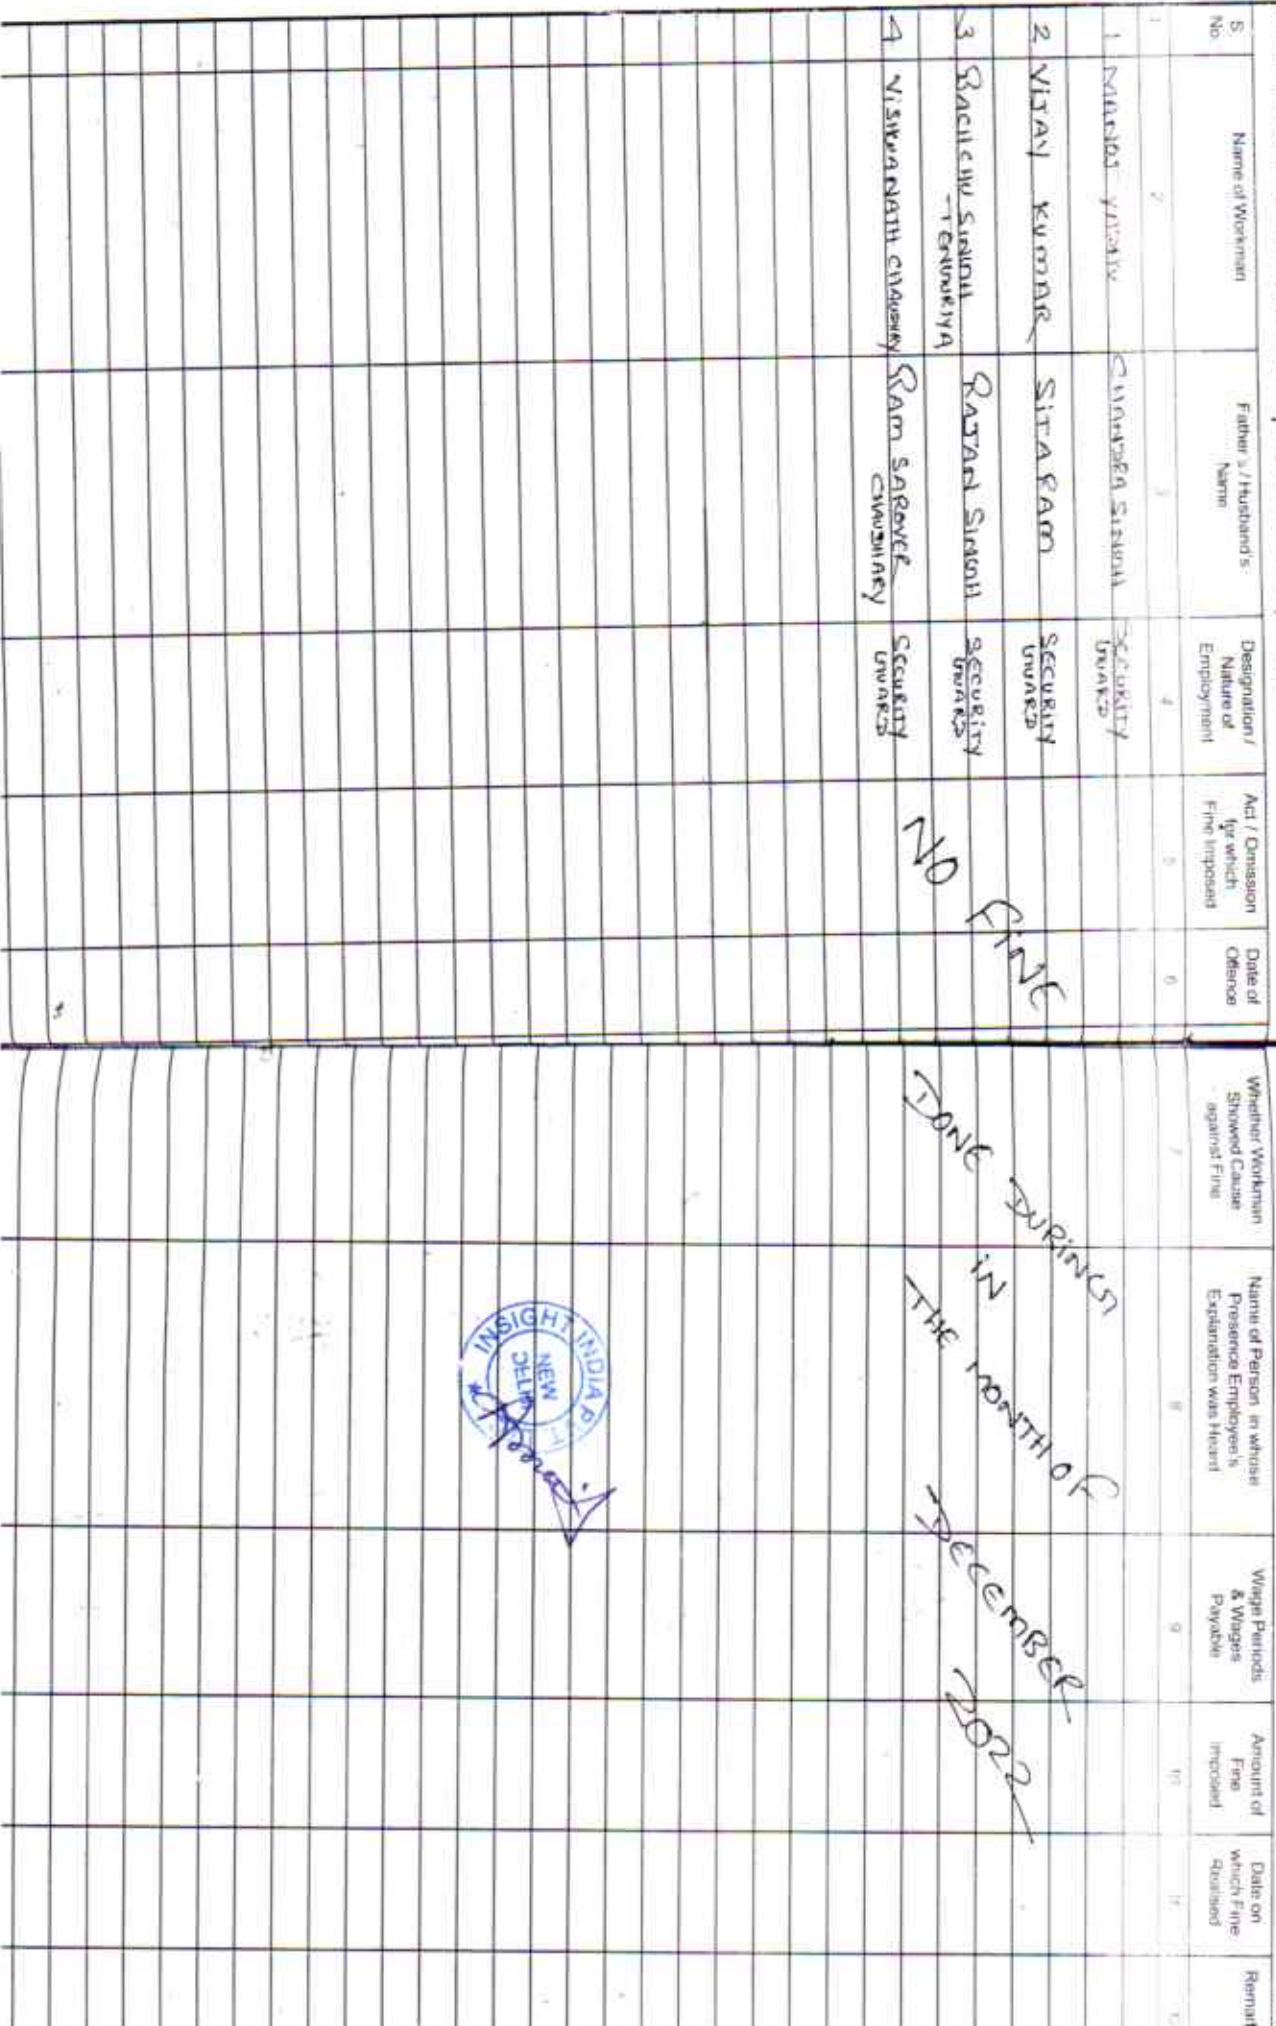 S No. Name of Workman Father's / Husband's - Name Designation / Nature of Employment Act / Omission for which Fine Imposed Date of Offence Whether Workman Showed Cause against Fine Name of Person in whose Presence Employee's Explanation was Heard Wage Periods & Wages Payable Amount of Fine Imposed Date on which Fine Realised Remar
1 2 3 4 5 6 7 8 9 10 11
1 MANOJ YADAV CHANDRA SINGH SECURITY GUARD
2 VIJAY KUMAR SITARAM SECURITY GUARD
3 BACHCHU SINGH RAJAN SINGH SECURITY GUARD
4 VISHWANATH CHAUDHRY RAM SAROVER CHAUDHARY SECURITY GUARD
NO FINE
DONE DURING IN THE MONTH OF DECEMBER 2022
INSIGHT INDIA P
NEW
DELHI